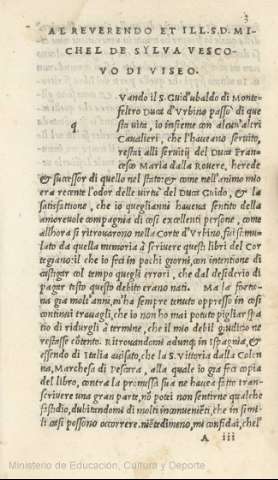 3
AL REVERENDO ET ILL.S.D.MI-
CHEL DE SYLVA VESCO-
VO DI VISEO.
q
Vando il S. Guid'ubaldo di Monte-
feltro Duca d'Vrbino passò di que
sta uita, io insieme con alcun'altri
Cavalieri, che l'haueano seruito,
restai alli seruitij del Duca Fran-
cesco Maria dalla Rouere, herede
& successor di quello nel stato: & come nell'animo mio
era recente l'odor delle uirtù del Duca Guido, & la
satisfattione, che io quegli anni haueua sentito della
amoreuole compagnia di cosi excellenti persone, come
allhora si ritrouarono nella Corte d'Vrbino, fui stimu
lato da quella memoria à scriuere questi libri del Cor
tegiano: il che io feci in pochi giorni, con intentione di
castigar col tempo quegli errori, che dal desiderio di
pagar tosto questo debito erano nati. Ma la fortu-
na già molt'anni, m'ha sempre tenuto oppresso in cosi
continui trauagli, che io non ho mai potute pigliar spa
tio di ridurgli à termine, che il mio debil giudicio ne
restasse cōtento. Ritrouandomi adunq; in Ispagnia, &
essendo di Italia auisato, che la S. Vittoria dalla Colon
na, Marchesa di Pescara, alla quale io gia feci copia
del libro, contra la promessa sua ne hauea fatto tran-
scriuere una gran parte, nō potei non sentirne qualche
fastidio, dubitandomi di molti inconuenieti, che in simi-
li casi possono occorrere. niētedimeno, mi confidai, che l'
A iii
Ministerio de Educación, Cultura y Deporte